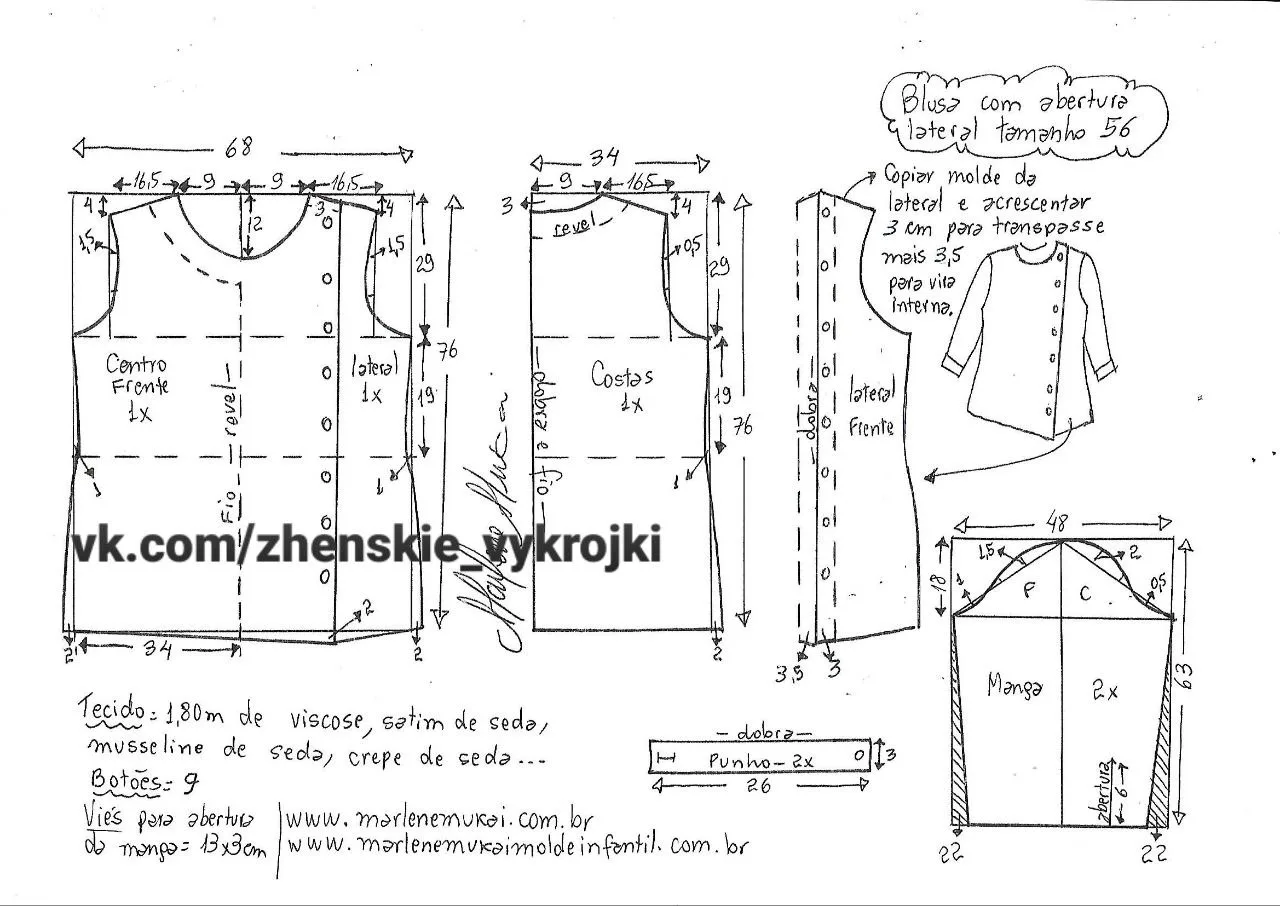 Blusa com abertura
lateral tamanho 56
68
16,5 9 9 16,5
4
12
3
4
1,5
1,5
29
76
Centro
Frente
1x
lateral
1x
19
revel
Fio
1
1
2
34
2
2
34
9 16,5
3
revel
4
0,5
29
Costas
1x
19
76
dobra e fio
1
2
Copiar molde da
lateral e acrescentar
3 cm para transpasse
mais 3,5
para vira
interna.
dobra
lateral
Frente
3,5
3
vk.com/zhenskie_vykrojki
48
1,5
2
18
1
F
C
0,5
Manga
2x
63
abertura
6
22
22
Tecido = 1,80m de viscose, satim de seda,
musseline de seda, crepe de seda...
Botões = 9
Viés para abertura
da manga = 13x3cm
www.marlenemukai.com.br
www.marlenemukaimoldeinfantil.com.br
dobra
Punho - 2x
3
26